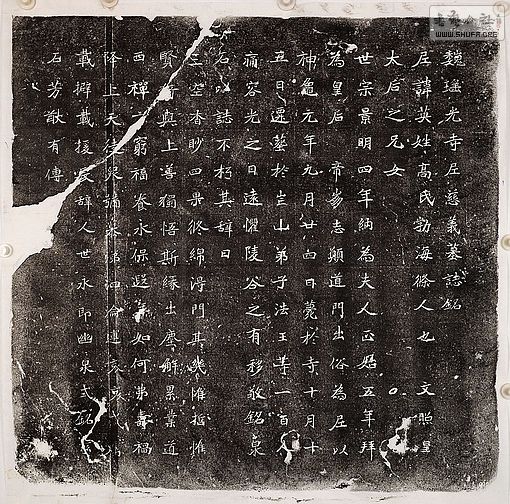 魏瑤光寺尼慈義墓誌銘
尼諱英姓高氏勃海條人也 文昭皇
太后之兄女
世宗景明四年納為夫人正始五年拜
為皇后 帝崩志願道門出俗為尼以
神龜元年九月廿四日薨於寺十月十
五日遷葬於芒山弟子法王等一百人
痛容光之日遠懼陵谷之有移敬銘泉
石以誌不朽其辭曰
三空杳眇四果攸綿得門其幾惟哲惟
賢猗與上善獨悟斯緣出塵解累業道
西禪方窮福養永保遐年如何弗壽禍
降上天徒眾號慕涕泗淪漣哀哀戚
載擗載援長辭人世永即幽泉式銘
石芳猷有傳
WWW.SHUFA.ORG